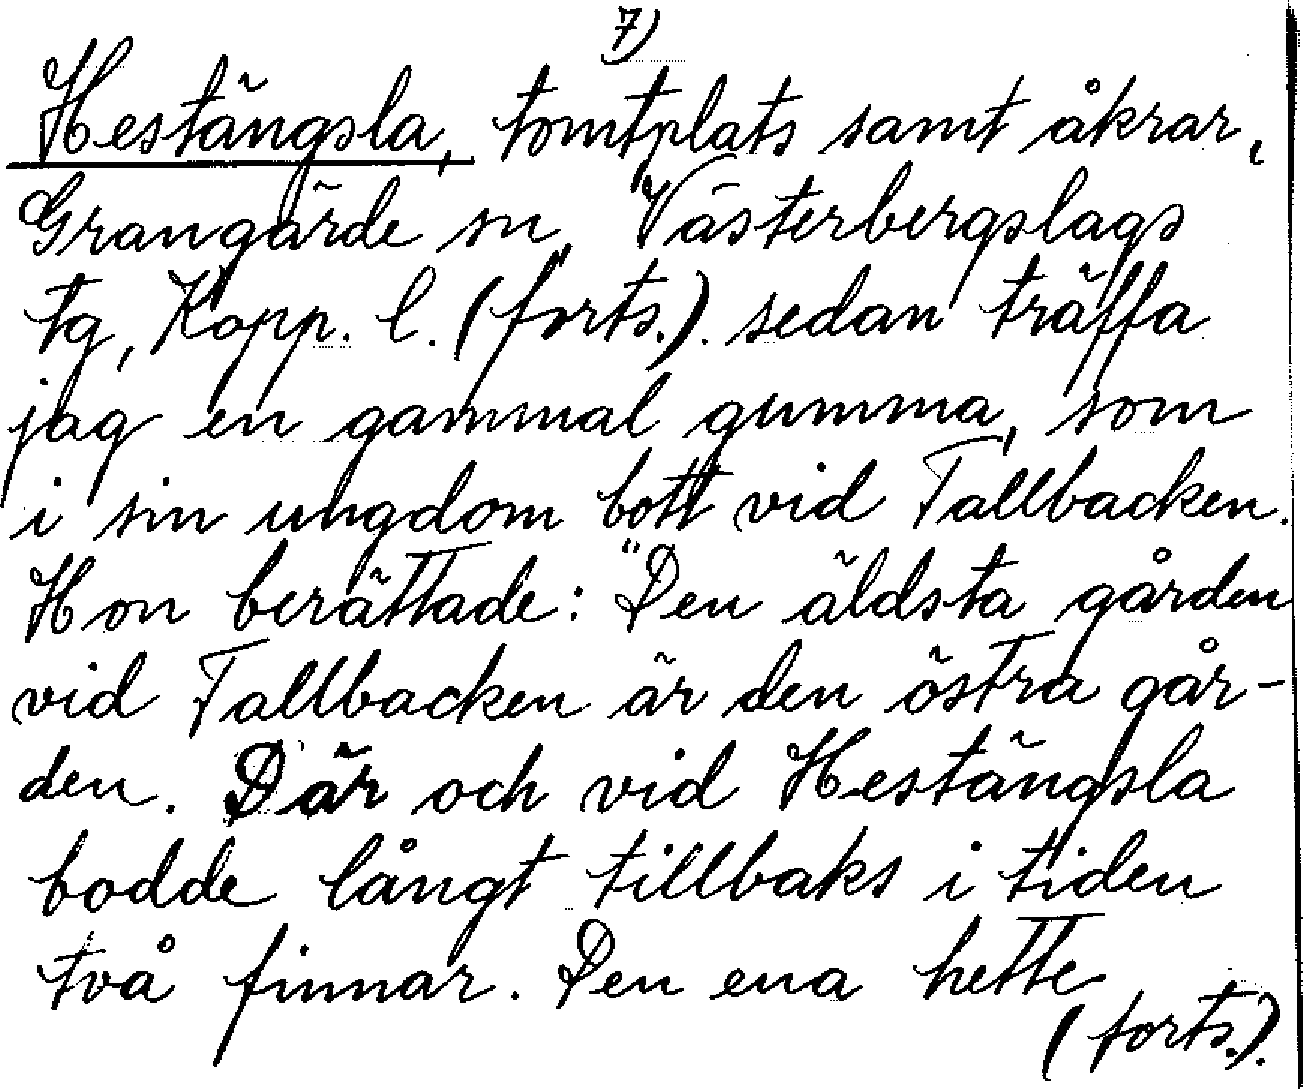 7)
Hestängsla, tomtplats samt åkrar,
Grangärde sn, Västerbergslags
tg, Kopp. l. (forts.). sedan träffa
jag en gammal gumma, som
i sin ungdom bott vid Tallbacken.
Hon berättade: "Den äldsta gården
vid Tallbacken är den östra går-
den. Där och vid Hestängsla
bodde långt tillbaks i tiden
två finnar. Den ena hette
(forts.).